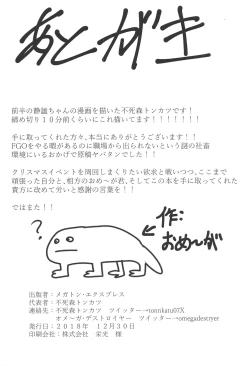 あとがき
前半の静雄ちゃんの漫画を描いた不死森トンカツです！
締め切り１０分前くらいにこれ描いてます！！！！！！！
手に取ってくれた方々、本当にありがとうございます！！
FGOをやる暇があるのに職場から出られないという謎の社畜
環境にいるおかげで原稿ヤバタンでした！！
クリスマスイベントを周回しまくりたい欲求と戦いつつ、ここまで
頑張った自分と、相方のおめ～が君、そしてこの本を手に取ってくれた
貴方に改めて労いと感謝の言葉を！！
ではまた！！
？
作：
おめ～が
出版者：メガトン・エクスプレス
代表者：不死森トンカツ
連絡先：不死森トンカツ　ツイッター→tonnkatu07X
オメ～ガ・デストロイヤー　ツイッター→omegadestryer
発行日：２０１８年　１２月３０日
印刷会社：株式会社　栄光　様